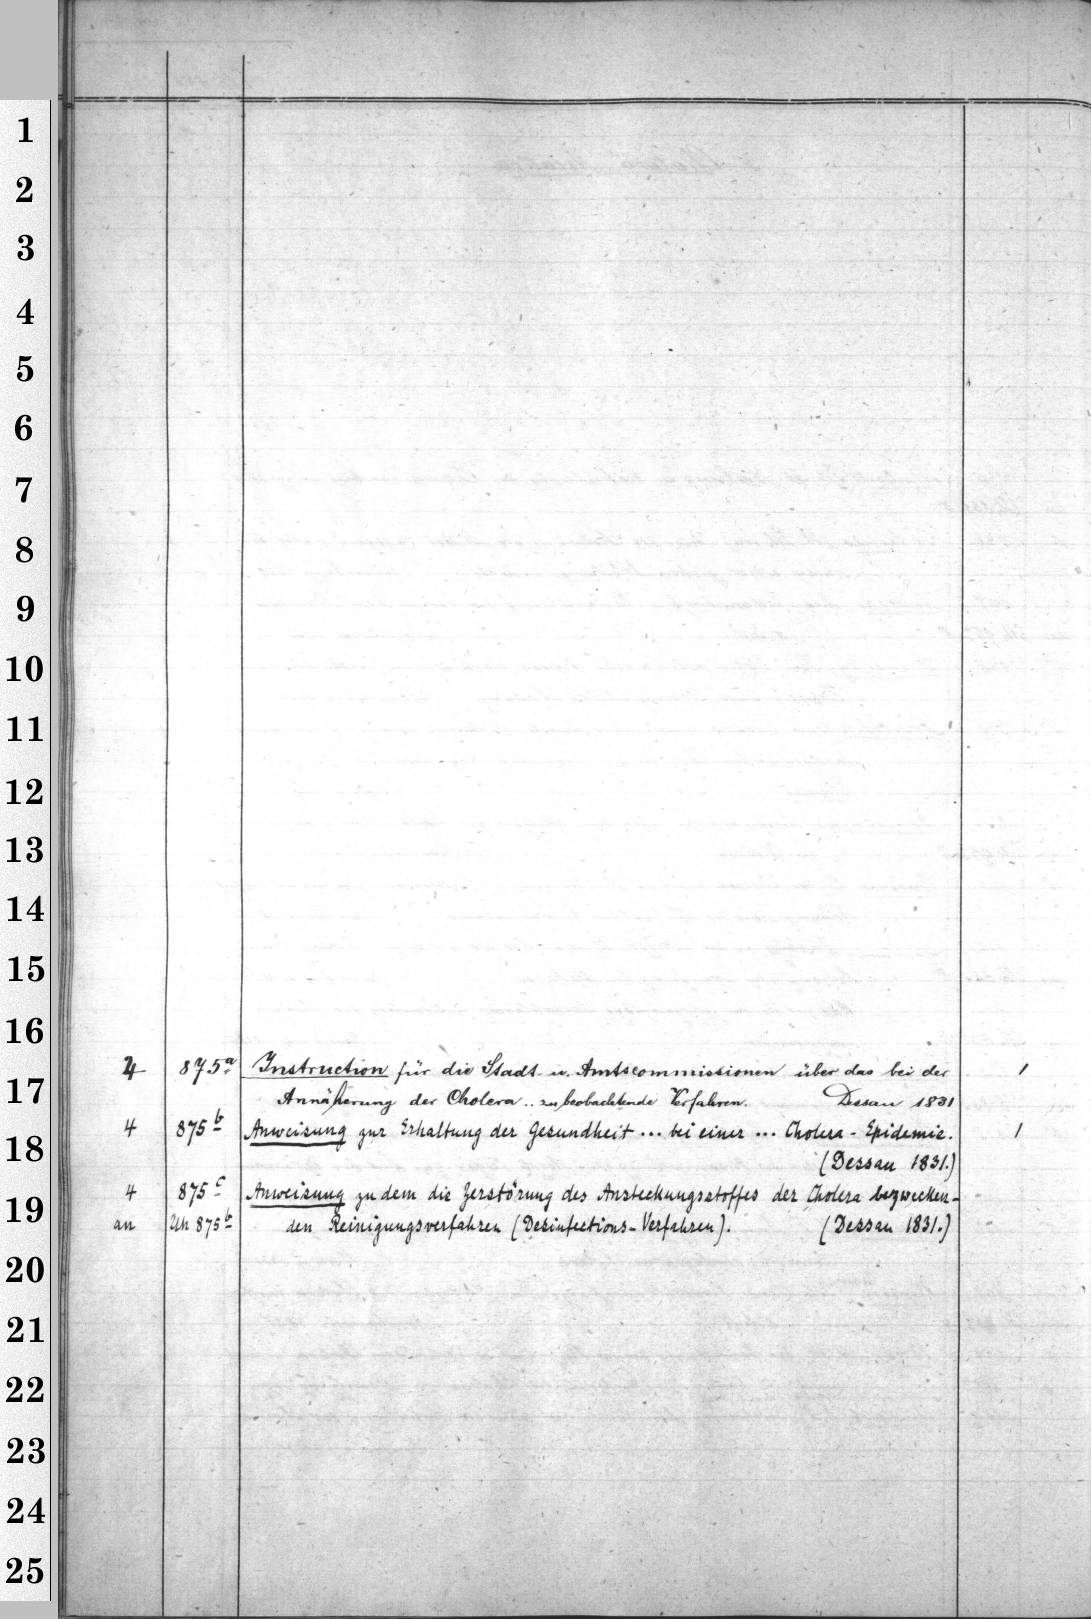 1
2
3
4
5
6
7
8
9
10
11
12
13
14
15
16
4 875a Instruction für die Stadt- u. Amtscommissionen über das bei der 1
17
Annäherung der Cholera .. zu beobachtende Verfahren. Dessau 1831
4 875b Anweisung zur Erhaltung der Gesundheit ... bei einer ... Cholera-Epidemie. 1
18
(Dessau 1831.)
4 875c Anweisung zu dem die Zerstörung des Ansteckungsstoffes der Cholera bezwecken-
19
an Uh 875b den Reinigungsverfahren (Desinfections-Verfahren). (Dessau 1831.)
20
21
22
23
24
25